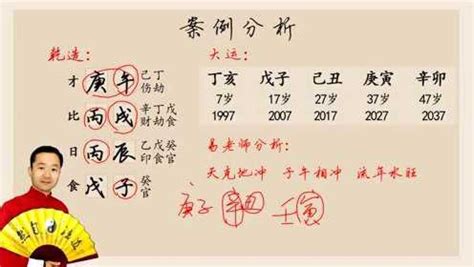 案例分析
乾造：
才 庚午 己丁
伤劫
比 丙戌 辛丁戊
财劫食
日 丙辰 乙戊癸
印食官
食 戊子 癸
官
大运：
丁亥 戊子 己丑 庚寅 辛卯
7岁 17岁 27岁 37岁 47岁
1997 2007 2017 2027 2037
易老师分析：
天克地冲 子午相冲 流年水旺
庚子 辛丑 壬寅